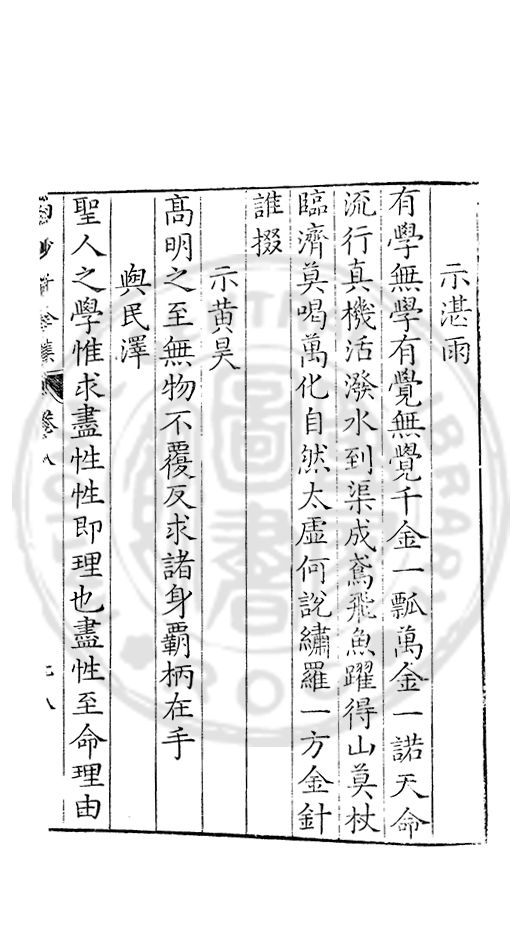 示湛雨
有學無學有覺無覺千金一瓢萬金一諾天命
流行真機活潑水到渠成鳶飛魚躍得山莫杖
臨濟莫喝萬化自然太虛何說繡羅一方金針
誰掇
示黃昊
高明之至無物不覆反求諸身霸柄在手
與民澤
聖人之學惟求盡性性即理也盡性至命理由